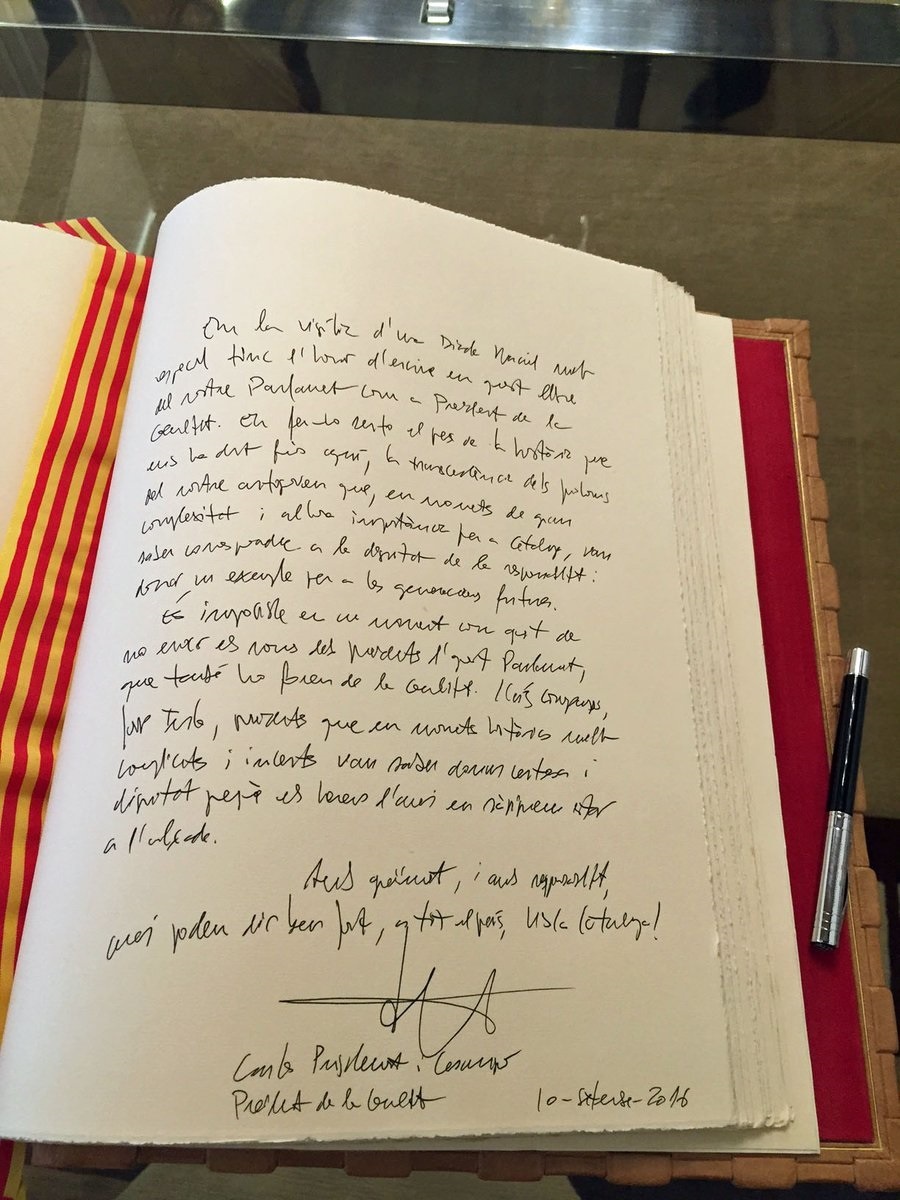 En la vigília d'una Diada Nacional molt
especial tinc l'honor d'escriure en aquest llibre
del nostre Parlament com a President de la
Generalitat. En fer-ho sento el pes de la història que
ens ha dut fins aquí, la transcendència dels
del nostre autogovern que, en moments de gran
complexitat i alhora importància per a Catalunya, van
saber correspondre a la dignitat de la responsabilitat:
donar un exemple per a les generacions futures.
És impossible en un moment com aquest de
no evocar els noms dels presidents d'aquest Parlament,
que també ho foren de la Generalitat. Lluís Companys,
Josep Irla, presidents que en moments històrics molt
complicats i incerts van saber donar certesa i
dignitat perquè els hereus d'avui en sàpiguem estar
a l'alçada.
Amb agraïment, i amb responsabilitat,
avui podem dir ben fort, a tot el país, Visca Catalunya!
Carles Puigdemont i Casamajó
President de la Generalitat 10-setembre-2016